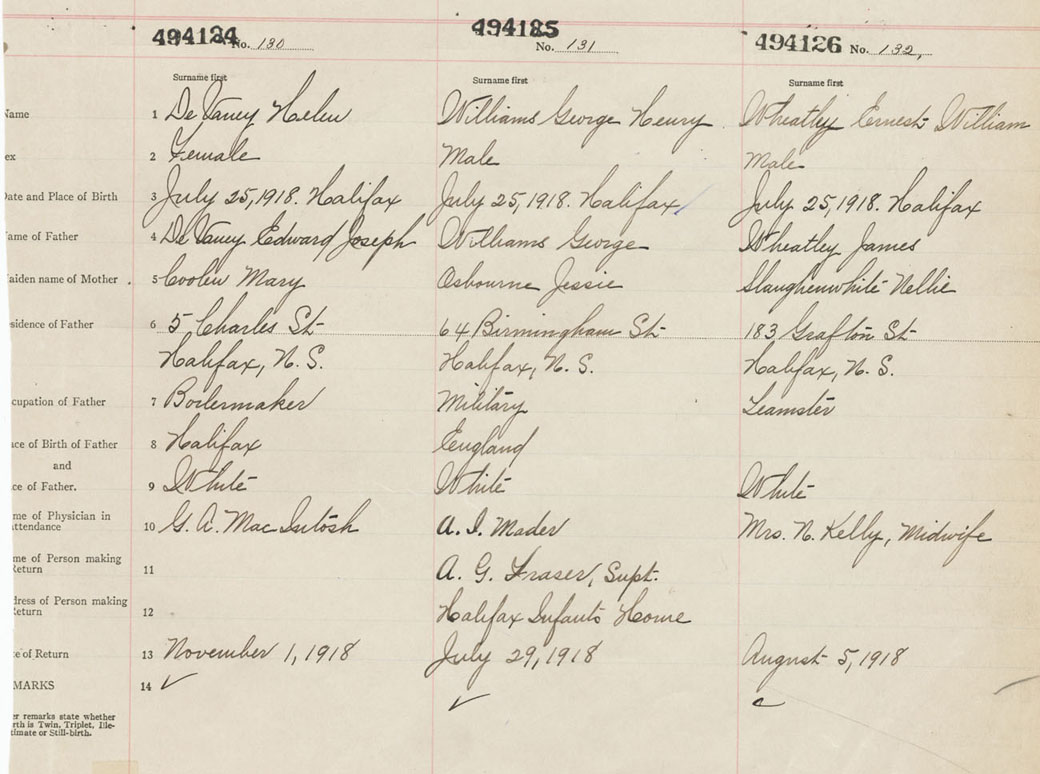 494124 No. 130 494125 No. 131 494126 No. 132,
Surname first Surname first Surname first
Name 1 DeVaney Helen Williams George Henry Wheatley Ernest William
ex 2 Female Male Male
Date and Place of Birth 3 July 25, 1918. Halifax July 25, 1918. Halifax July 25, 1918. Halifax
ame of Father 4 DeVaney Edward Joseph Williams George Wheatley James
aiden name of Mother 5 Coolen Mary Osbourne Jessie Slaughenwhite Nellie
sidence of Father 6 5 Charles St 64 Birmingham St 183 Grafton St
Halifax, N. S. Halifax, N. S. Halifax, N. S.
cupation of Father 7 Boilermaker Military Teamster
ace of Birth of Father 8 Halifax England
and
ce of Father. 9 White White White
me of Physician in
attendance 10 G. A. MacIntosh A. I. Mader Mrs. N. Kelly, Midwife
me of Person making
Return 11 A. G. Fraser, Supt.
dress of Person making
Return 12 Halifax Infants Home
te of Return 13 November 1, 1918 July 29, 1918 August 5, 1918
MARKS 14 ✓ ✓
er remarks state whether
rth is Twin, Triplet, Ille-
timate or Still-birth.